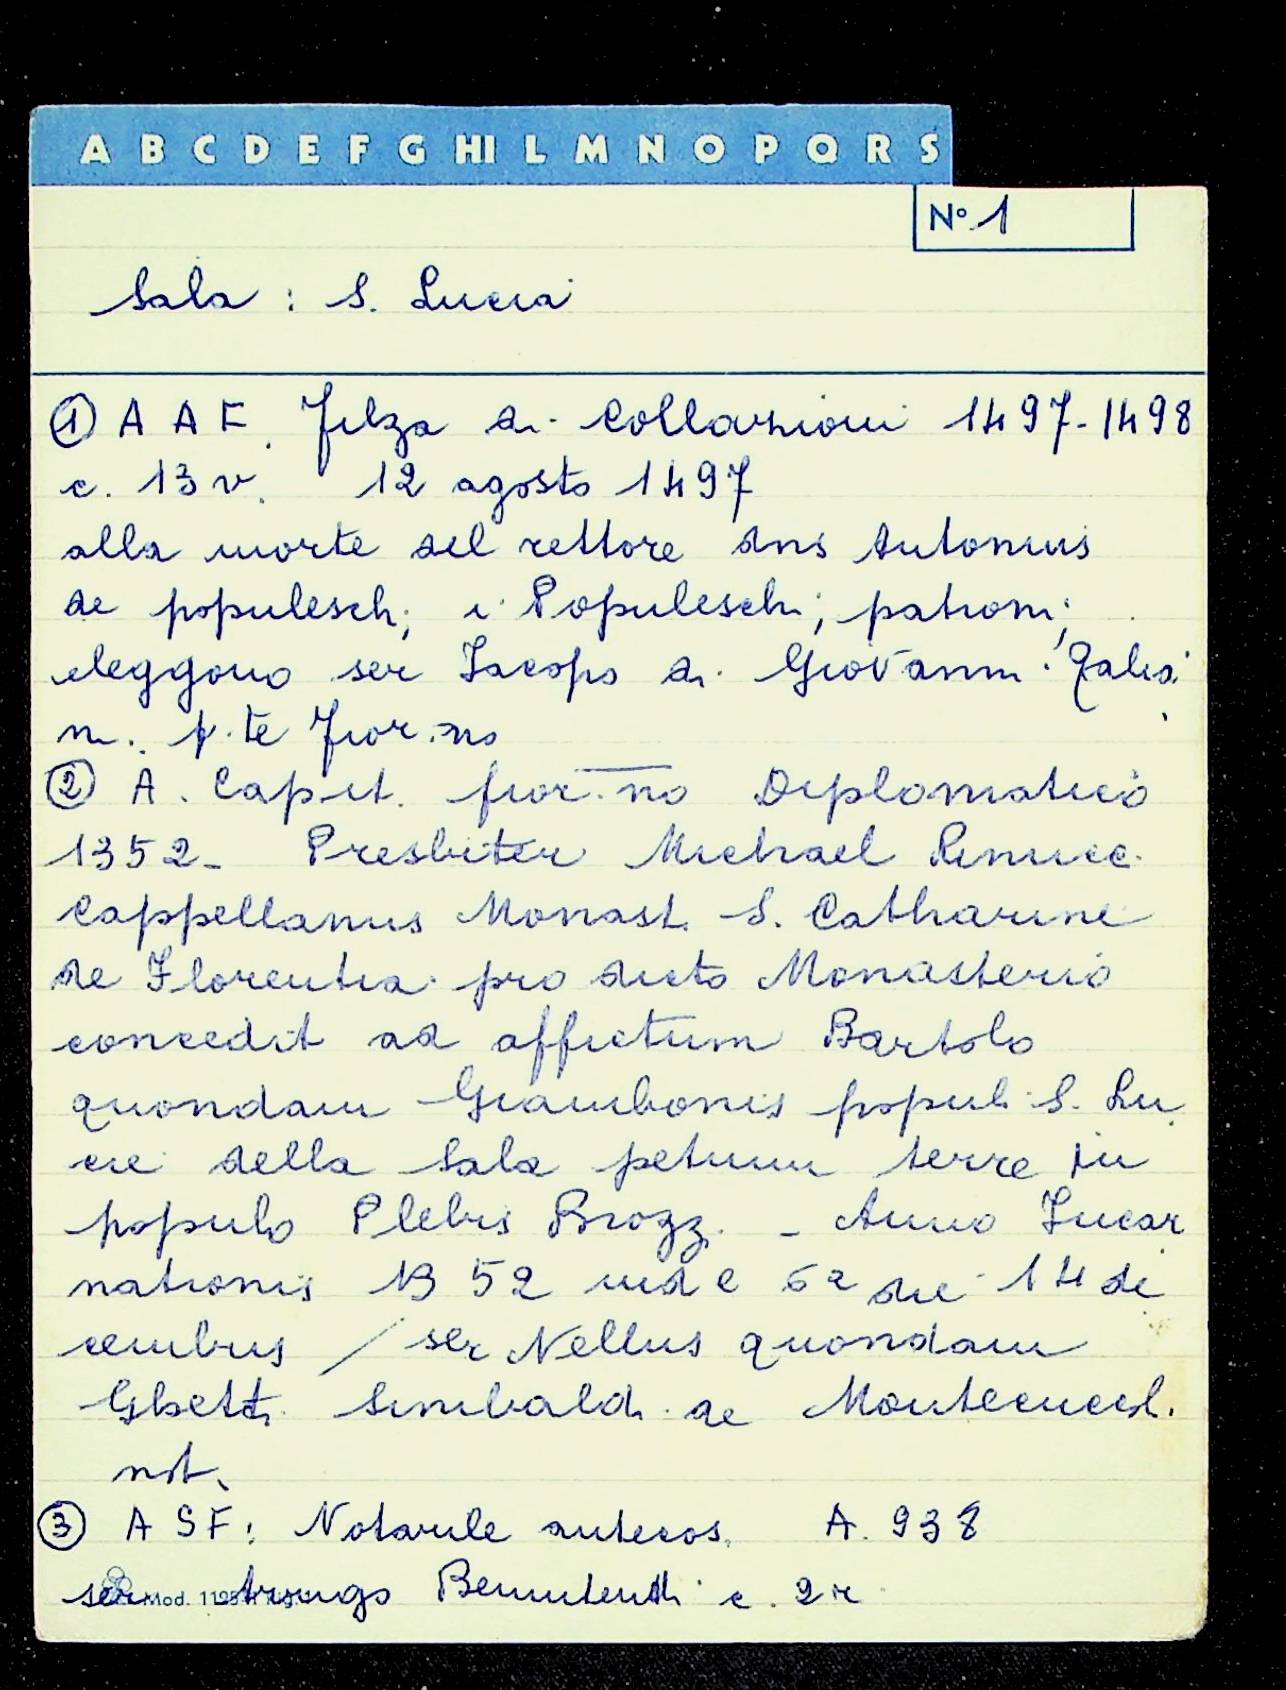 A B C D E F G HI L M N O P Q R S
N° 1
Sala : S. Lucia
① A A F. Filza di Collazioni 1497-1498
c. 13 v. 12 agosto 1497
alla morte del rettore dns Antonius
de populeschi, i Populeschi, patroni,
eleggono ser Iacopo di Giovanni
p.te fior.no
② A. Capit. fior.no Diplomatico
1352- Presbiter Michael Rinucc.
Cappellanus Monast. S. Catharine
de Florentia pro dicto Monasterio
concedit ad affictum Bartolo
quondam Giambonis populi S. Lu
cie della Sala petium terre in
populo Plebis Brozzi. - Anno Incar
nationis 1352 ind e 6a die 14 de
cembris / ser Nellus quondam
Ghetti Sinibaldi de Montecuccol.
not.
③ A S F: Notarile antecos. A. 938
ser c. 2r
Mod.